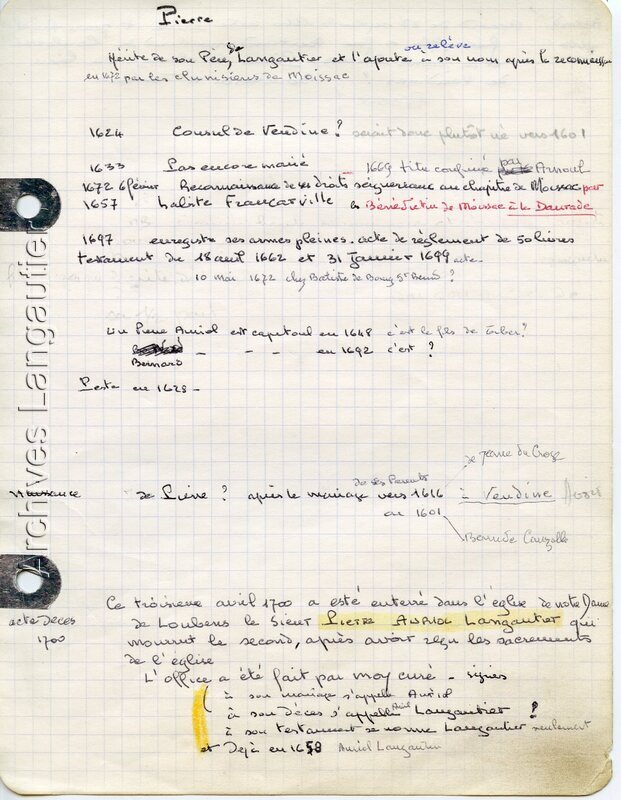 Pierre
Hérite de son Père, de Langautier et l'ajoute ou relève à son nom après la reconnaissance
en 1672 par les clunisiens de Moissac
1624 Consul de Vendine? serait donc plutôt né vers 1601
1633 Pas encore marié _ 1669 titre confirmé par Arnoul
1672 6 février Reconnaissance de ses droits seigneuriaux au chapitre de Moissac par
1657 habite Francarville les Bénédictins de Moissac à la Daurade
1697 enregistre ses armes pleines. acte de règlement de 50 livres
testament du 18 août 1662 et 31 Janvier 1699 acte
10 mai 1672 chez Batiste de Bourg St Bernd?
Un Pierre Auriol est capitoul en 1648 c'est le fils de ?
Bernard _ - - en 1692 c'est ?
Peste en 1628 _
de Jeanne du
de ses Parents
Naissance de Pierre? après le mariage vers 1616 à Vendine
ou 1601
acte décès
1700
Ce troisieme avril 1700 a esté enterré dans l'église de notre Dame
de Loubens le Sieur PIERRE AURIOL Langautier qui
mourut le second, après avoir reçu les sacrements
de l'église
L'office a été fait par moy curé - signés
à son mariage s'appelle Auriol
à son décès s'appelle Auriol Langautier ?
à son testament se nomme Langautier seulement
et Déjà en 1658 Auriol Langautier
Archives Langautier